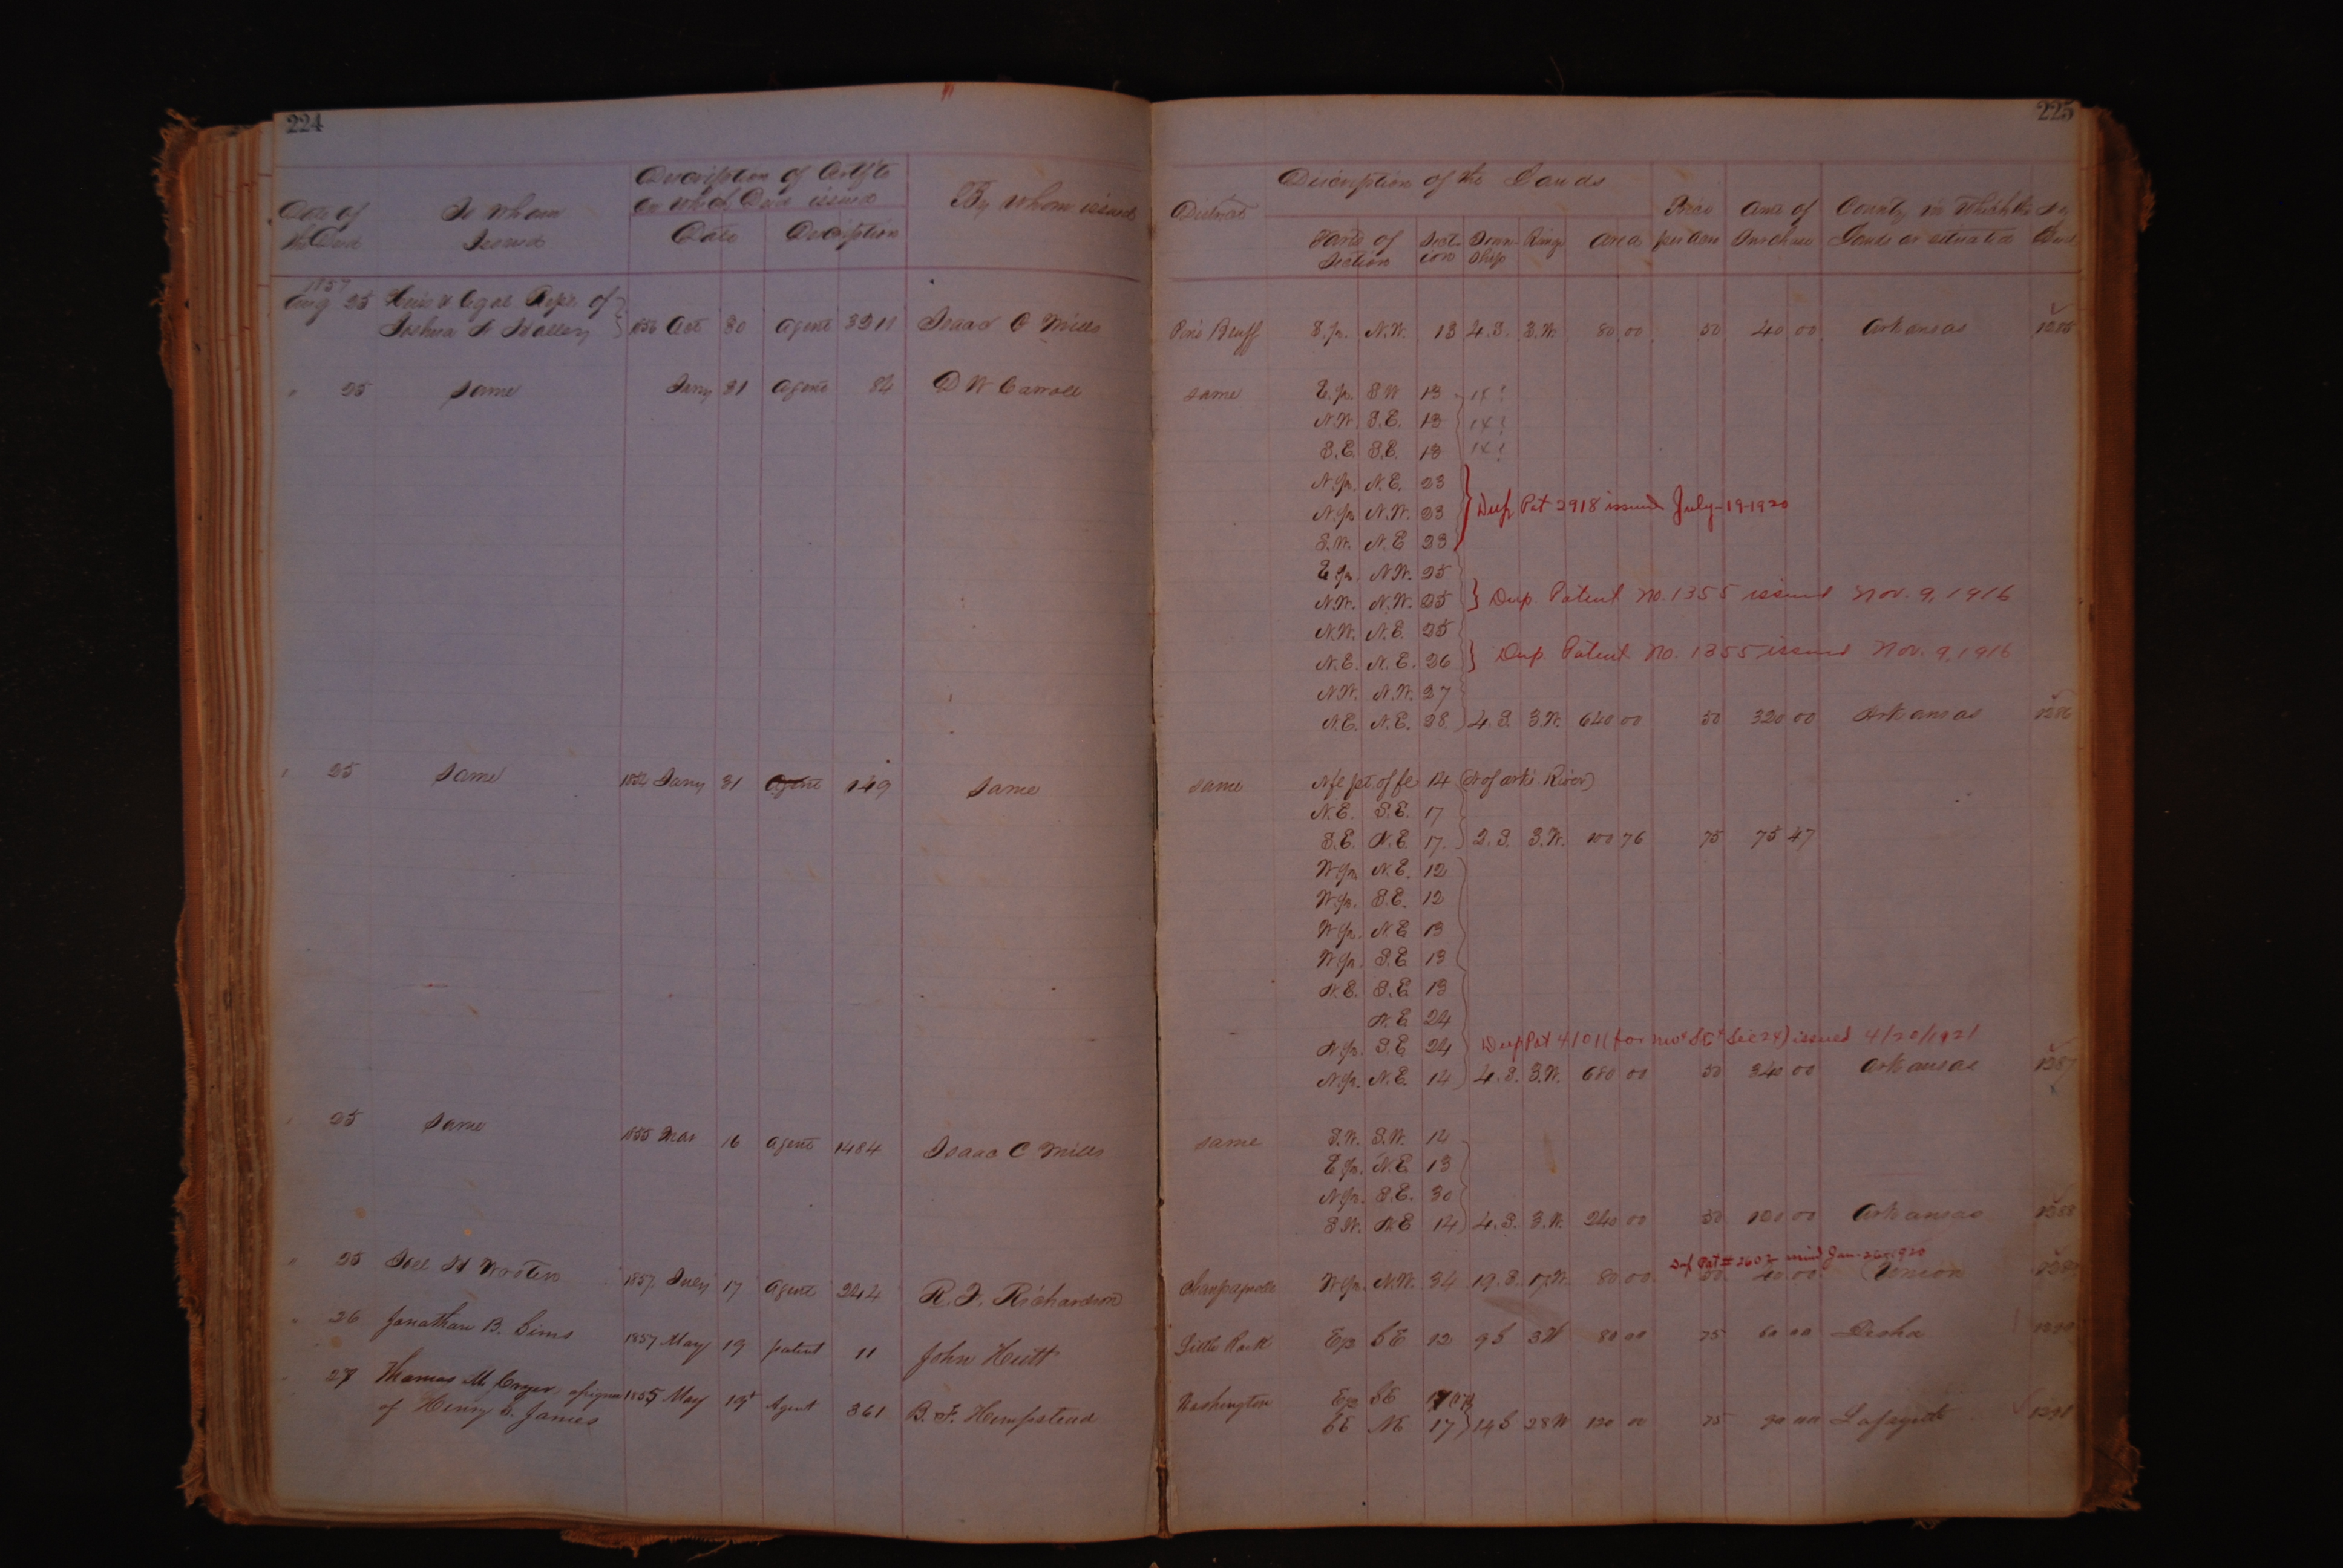 224
Description of Certf'te
on which Deed issued
Date of
the Deed
To Whom
Issued
Date
Description
By Whom issued
1857
Aug 25 Heirs & Legal Reps of
Joshua 1856 Oct 30 Agent Isaac C Mills
" 25 Same Jany 31 Agent 84 D W Carroll
" 25 Same Jany 31 Agent 149 Same
" 25 Same 1855 Mar 16 Agent 1484 Isaac C Mills
" 25 1857 July 17 Agent 2414 R. F. Richardson
" 26 Jonathan B. Sims 1857 May 19 patent 11 John Hutt
" 27 Thomas M. 1855 May 19 Agent 361 B. F. Hempstead
of Henry E. James
225
Description of the Lands
District
Parts of
Section
Sect-
ion
Town-
ship
Range
Area
Price
per acre
Amt of
Purchase
County in which the
Lands are situated
No
Deed
Pine Bluff E.½ N.W. 13 4.S. 3.W. 80 00 50 40 00 Arkansas 1285
same E.½ S W 13
N.W. S.E. 13
S.E. S.E. 13
N.½ N.E. 23
N.½ N.W. 23 Dup Pat 2918 issued July-19-1920
S.W. N.E 23
E.½ N.W. 25
N.W. N.W. 25 Dup. Patent No. 1355 issued Nov. 9, 1916
N.W. N.E. 25
N.E. N.E. 26 Dup. Patent No. 1355 issued Nov. 9, 1916
N.W. N.W. 27
N.E. N.E. 28 4.S. 3.W. 640 00 50 320 00 Arkansas 1286
same N fl pt of fl 14 (N of Arks River)
N.E. S.E. 17
S.E. N.E. 17 2.S. 3.W. 100 76 75 75 47
W.½ N.E. 12
W.½ S.E. 12
W.½ N.E 13
W.½ S.E 13
N.E. S.E 13
N.E 24
N.½ S.E 24 Dup Pat 4101 (for nw⁴ SE⁴ Sec 24) issued 4/20/1921
N.½ N.E. 14 4.S. 3.W. 680 00 50 340 00 Arkansas 1287
same S.W. S.W. 14
E.½ N.E 13
N.½ S.E. 30
S.W. N.E 14 4.S. 3.W. 240 00 50 Arkansas 1288
Dup Pat # issued Jan-26-1920
Champagnole W.½ N.W. 34 19.S. 17.W. 80 00 50 40 00 Union 1289
Little Rock E½ SE 12 9S 3W 80 00 75 60 00 Desha 1290
Washington E½ SE
SE NE 17 14S 28W 120 00 75 90 00 Lafayette 1291